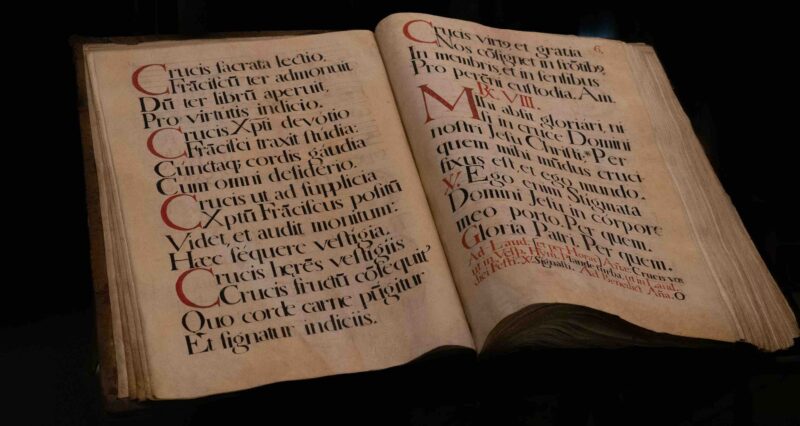 Crucis ſacrata lectio,
Frãciſcũ ter admonuit
Dũ ter librũ aperuit,
Pro virtutis indicio.
Crucis Xpti devotio
Frãciſci traxit ſtudia:
Cũctaq; cordis gaudia
Cum omni deſiderio.
Crucis ut ad ſupplicia
Xptũ Frãciſcus poſitũ
Videt, et audit monitum:
Hæc ſequere veſtigia.
Crucis herẽs veſtigiis
Crucis fructũ cõſequit'
Quo corde carne pũgitur
Et ſignatur indiciis.
6.
Crucis et gratia
Nos cõſignet in frõtibꝫ
In membris, et in ſenſibus
Pro perẽni cuſtodia. Am.
VIII.
Mihi abſit gloriári, ni
ſi in cruce Domini
noſtri Jeſu Chriſti: Per
quem mihi mũdus cruci
fixus eſt, et ego mundo.
℣. Ego enim Stigmata
Domini Jeſu in córpore
meo porto. Per quem.
Gloria Patri. Per quem.
Ad Laud. et per Horas Aña. Crucis vox
ut in Laud.
Ad Benedict. Aña. O